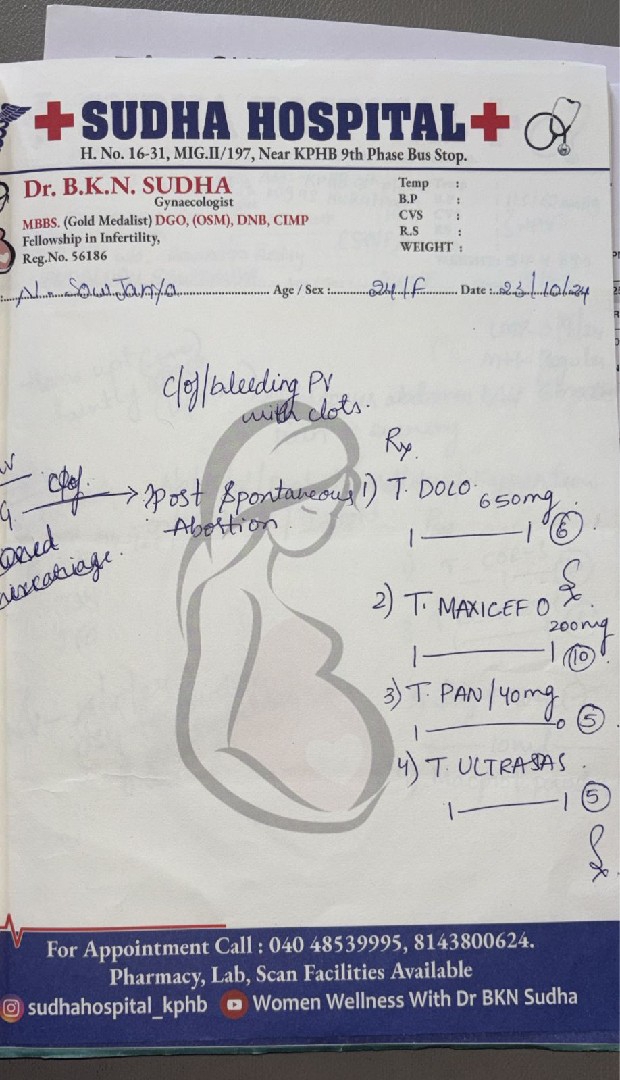 SUDHA HOSPITAL
H. No. 16-31, MIG.II/197, Near KPHB 9th Phase Bus Stop.
Dr. B.K.N. SUDHA
Gynaecologist
MBBS. (Gold Medalist) DGO, (OSM), DNB, CIMP
Fellowship in Infertility,
Reg.No. 56186
Temp :
B.P :
CVS :
R.S :
WEIGHT :
N. Sowjanya Age / Sex : 24/F Date : 23/10/24
C/o/bleeding PV
with clots.
Rx
c/o/ → Post Spontaneous
Abostion
1) T. DOLO 650mg
1 — 1 (6)
2) T. MAXICEF O
200mg
1 — 1 (10)
3) T. PAN/40mg
1 — 0 (5)
4) T. ULTRASAS
1 — 1 (5)
For Appointment Call : 040 48539995, 8143800624.
Pharmacy, Lab, Scan Facilities Available
sudhahospital_kphb Women Wellness With Dr BKN Sudha